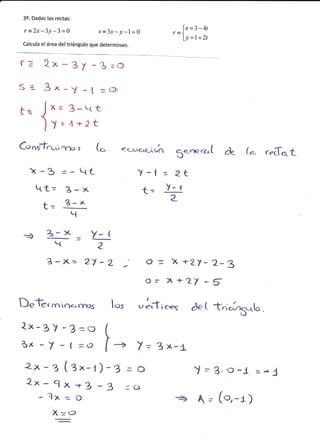 3ª. Dadas las rectas:
r ≡ 2x − 3y − 3 = 0   s ≡ 3x − y − 1 = 0   r ≡ { x = 3 − 4t
y = 1 + 2t
Calcula el área del triángulo que determinan.
r ≡ 2x - 3y - 3 = 0
s ≡ 3x - y - 1 = 0
t ≡ { x = 3 - 4t
y = 1 + 2t
Construimos la ecuación general de la recta t.
x - 3 = - 4t   y - 1 = 2t
4t = 3 - x   t = y-1/2
t = 3-x/4
⇒ 3-x/4 = y-1/2
3 - x = 2y - 2 ; 0 = x + 2y - 2 - 3
0 = x + 2y - 5
Determinamos los vértices del triángulo.
2x - 3y - 3 = 0
3x - y - 1 = 0 } → y = 3x - 1
2x - 3(3x-1) - 3 = 0   y = 3·0 - 1 = -1
2x - 9x + 3 - 3 = 0
- 7x = 0   ⇒ A = (0,-1)
x = 0